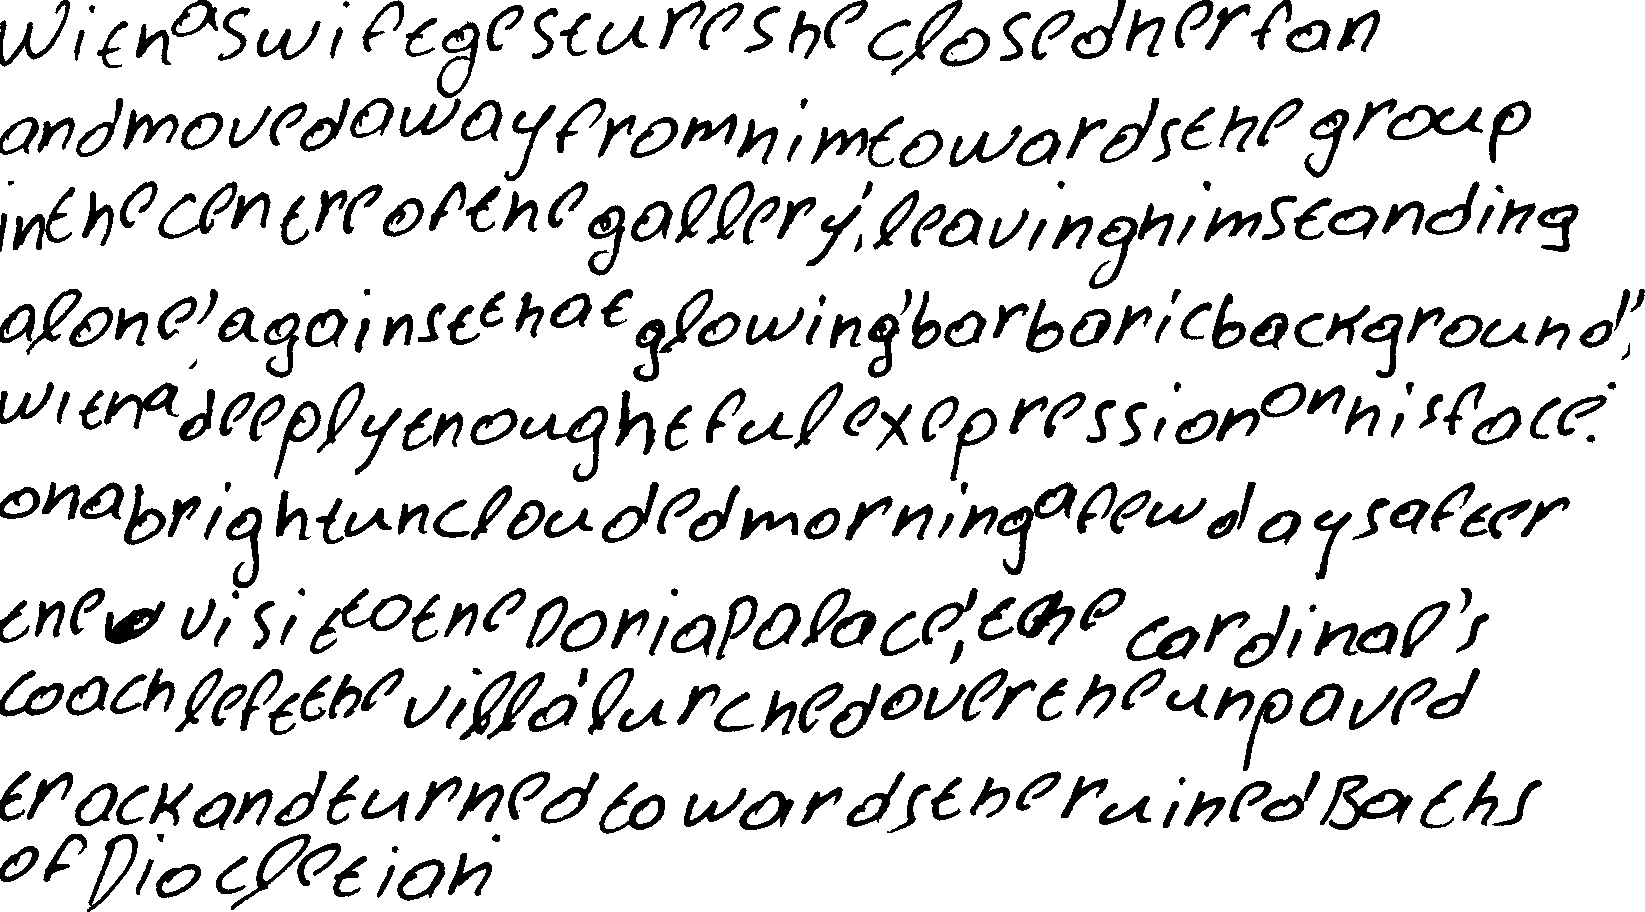 With a swift gesture she closed her fan
and moved away from him towards the group
in the centre of the gallery, leaving him standing
alone against that glowing barbaric background,
with a deeply thoughtful expression on his face.
on a bright unclouded morning a few days after
the visit to the Doria Palace, the cardinal's
coach left the villa lurched over the unpaved
track and turned towards the ruined Baths
of Diocletian